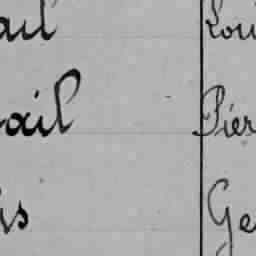 ail Loui
ail Pier
is Ge